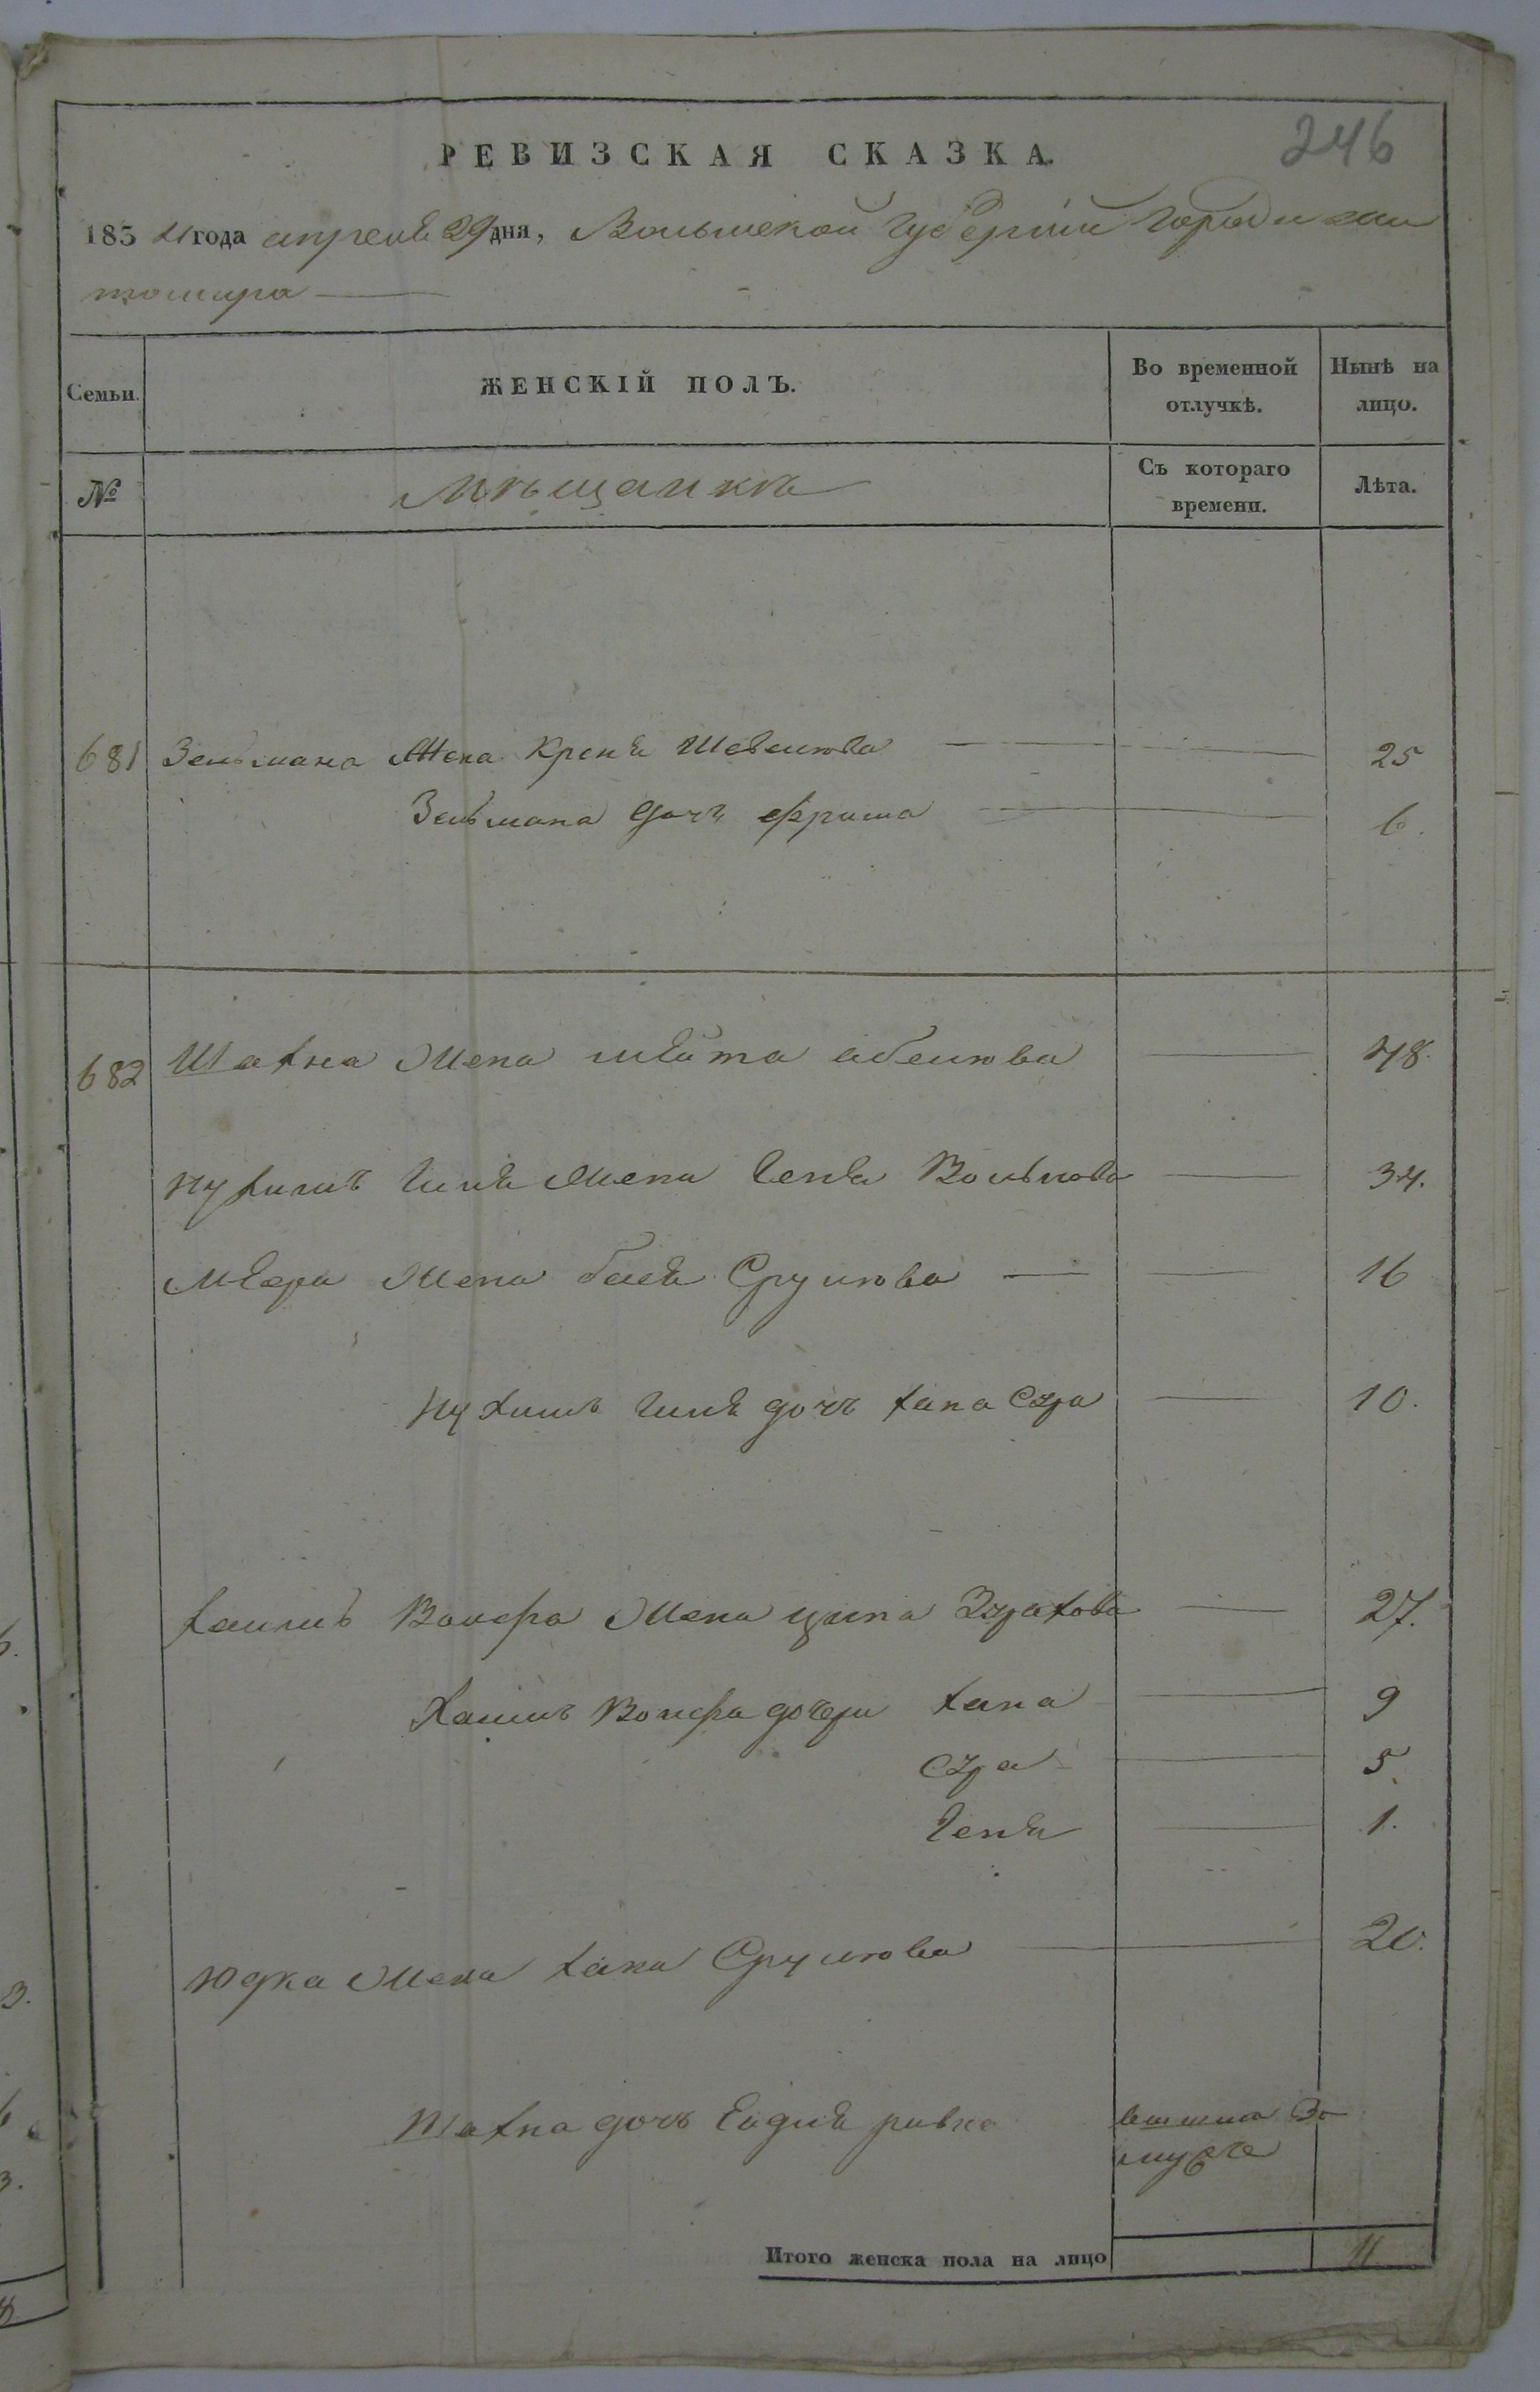 246
РЕВИЗСКАЯ СКАЗКА.
1834 года апреля 29 дня, Волынской губернии города Жи
томира
Семьи. ЖЕНСКІЙ ПОЛЪ. Во временной отлучкѣ. Нынѣ на лицо.
№ Мѣщанки Съ котораго времени. Лѣта.
681 Зельмана Жена Креня Шевелюва 25
Зельмана дочъ Фрима 6.
682 Шахна Жена абелюва 48.
Нухимъ Гиля Жена Геня Волькова 34.
Меера Жена Бейля Срулюва 16
Нухимъ Гиля дочъ хана Сура 10.
хаимъ Волфа Жена ципа 27.
Хаимъ Волфа дочери хана 9
Сура 5.
Геня 1.
Юдка Жена хана Срулюва 20.
Шахна дочъ ривка Замуже
Итого женска пола на лицо 11